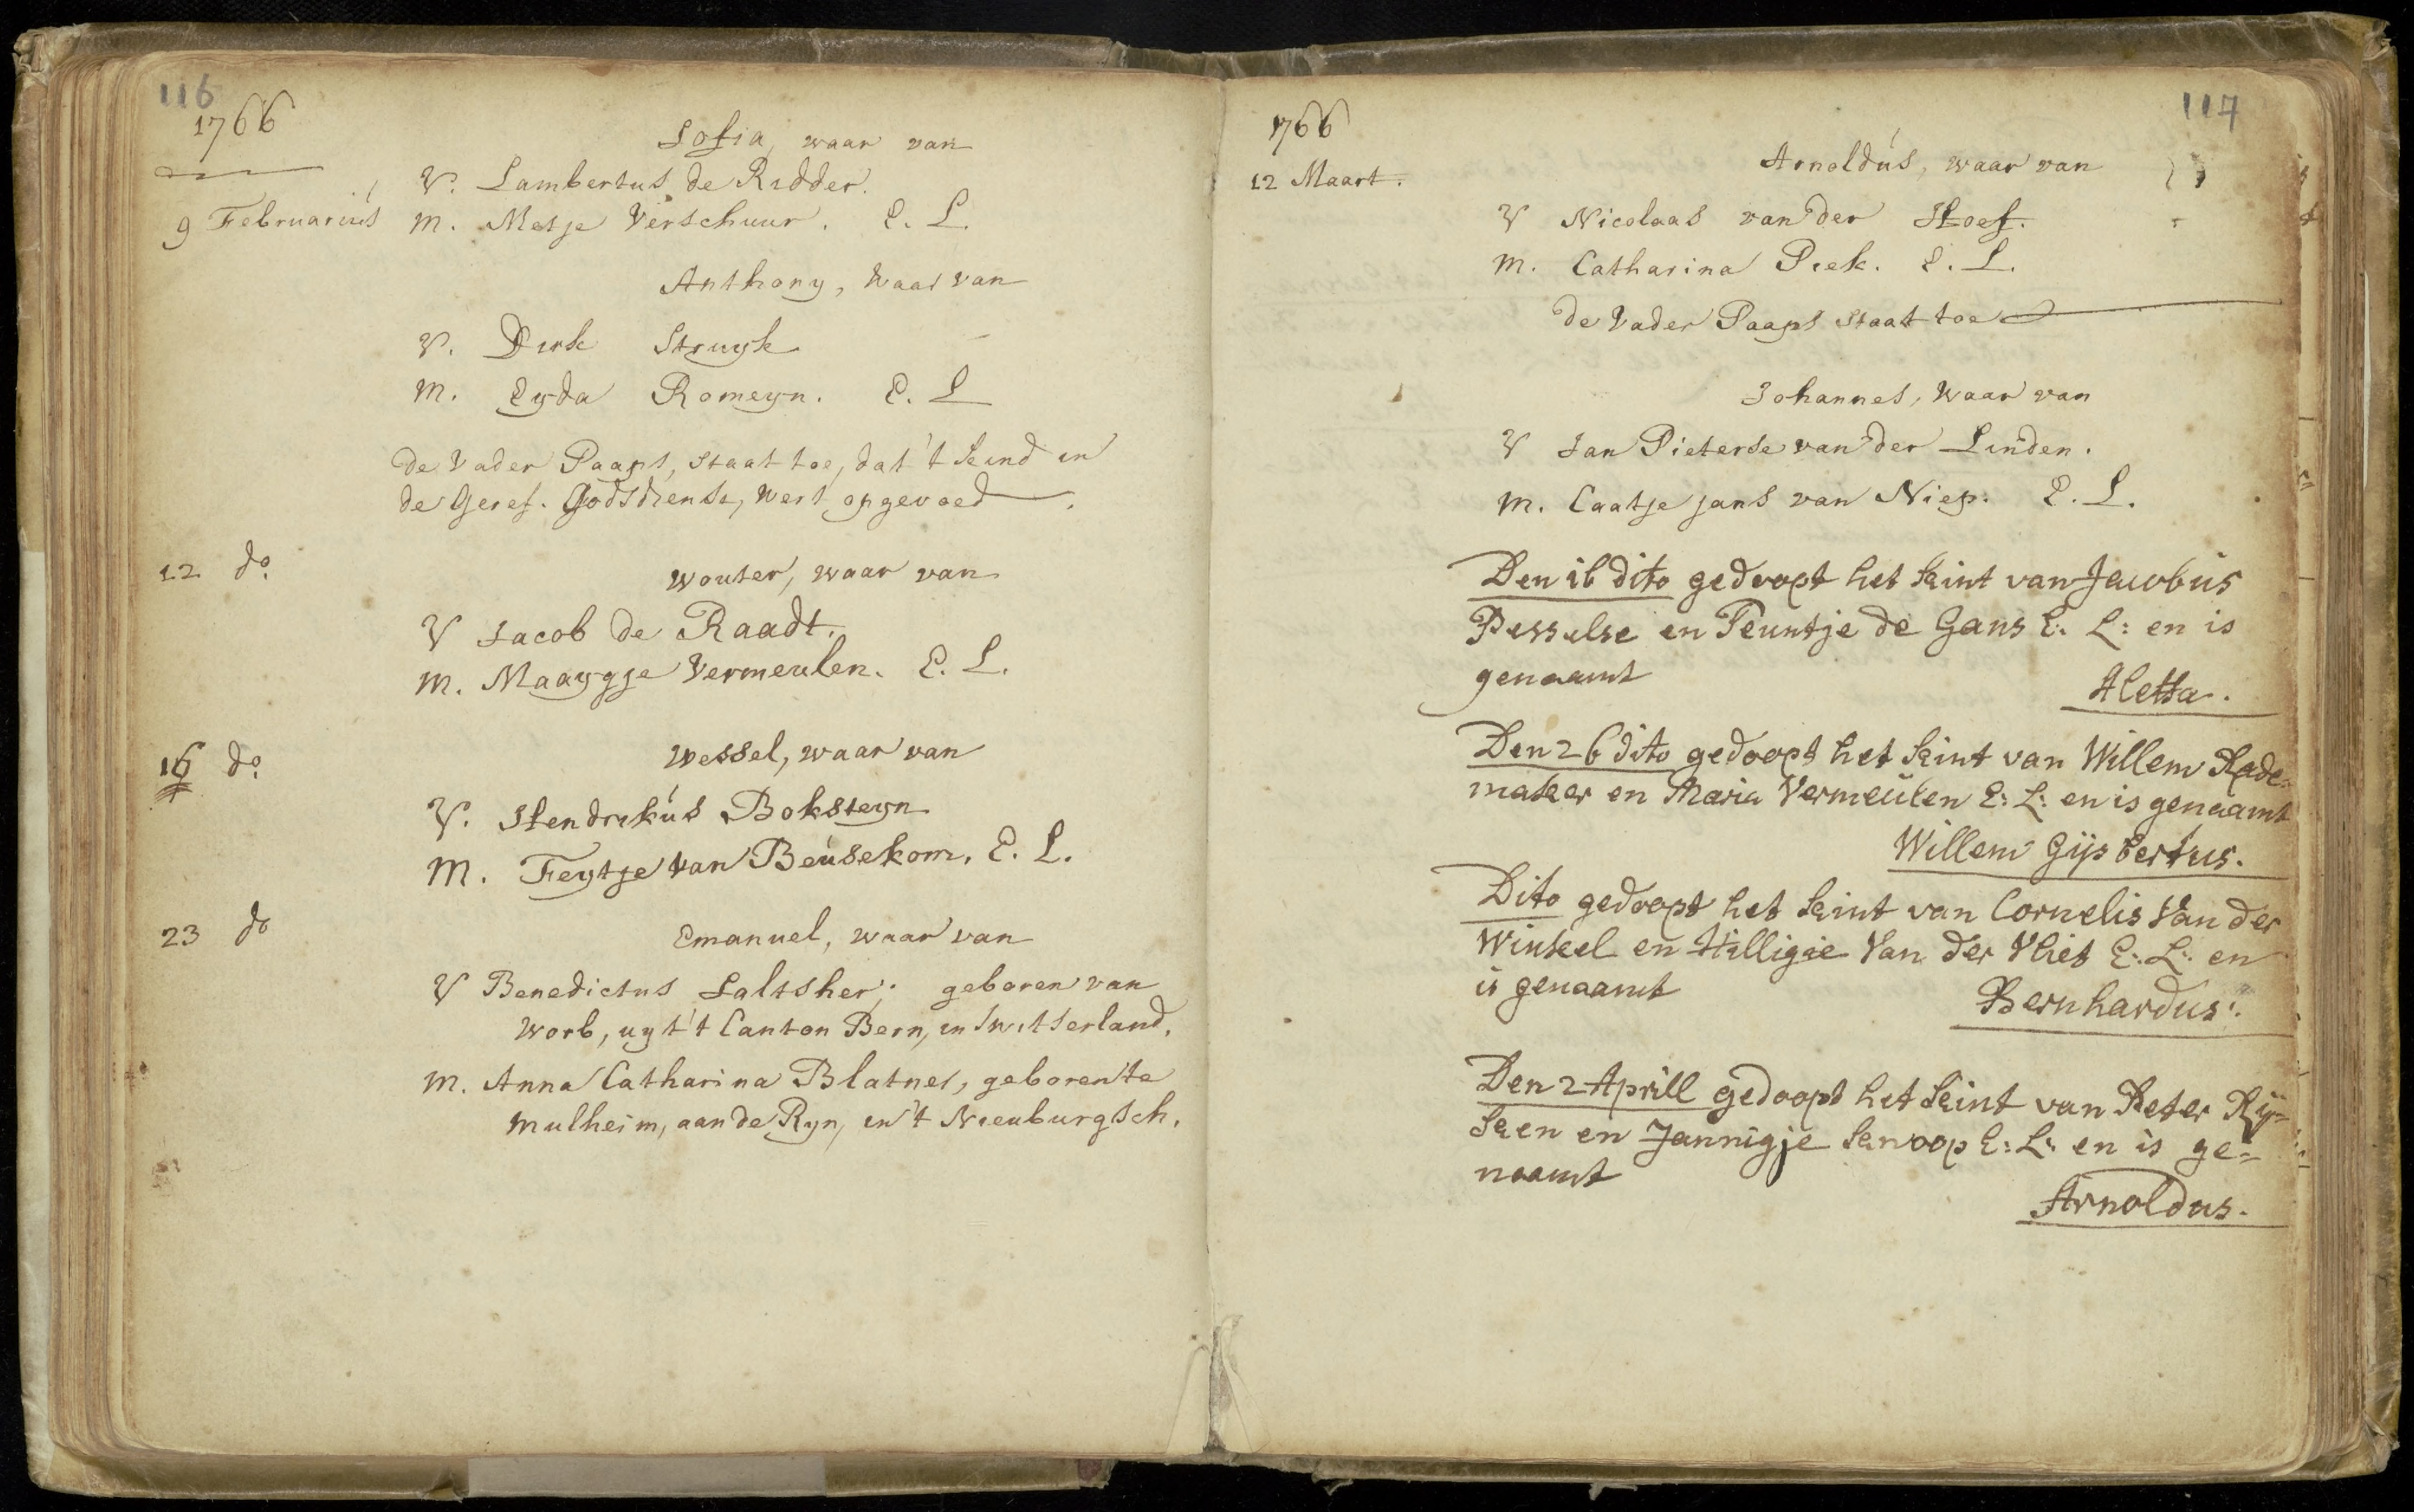 116
1766
Sofia, waar van
V. Lambertus de Ridder.
9 Februariús M. Metje Verschuur. E. L.
Anthony, waar van
V. Dirk Struyk
M. Eyda Romeyn. E. L
de Vader Paaps, staat toe, dat 't kind in
de Geref. Godsdienst, wert opgevoed.
12 do.
Wouter, waar van
V Jacob de Raadt.
M. Maaygje Vermeulen. E. L.
16 do.
Wessel, waar van
V. Hendrikús Boksteyn
M. Feytje van Beúsekom. E. L.
23 do
Emanuel, waar van
V Benedictus Saltsher; geboren van
Worb, uyt 't Canton Bern, in Switserland.
M. Anna Catharina Blatner, geboren te
Mulheim, aan de Ryn, in 't Nieuburgsch.
117
1766
12 Maart.
Arnoldús, waar van
V Nicolaas van der Hoef.
M. Catharina Piek. E. L.
de Vader Paaps staat toe
Johannes, waar van
V Jan Pieterse van der Linden.
M. Caatje jans van Niep. E. L.
Den 16 dito gedoopt het kint van Jacobus
Pesselse en Teuntje de Gans E: L: en is
genaamt
Aletta.
Den 26 dito gedoopt het kint van Willem Rade=
maker en Maria Vermeulen E: L: en is genaamt
Willem Gijsbertus.
Dito gedoopt het kint van Cornelis Van der
Winkel en Hilligie Van der Vliet E: L: en
is genaamt
Bernhardus.
Den 2 Aprill gedoopt het kint van Peter Rij=
ken en Jannigje knoop E: L: en is ge=
naamt
Arnoldus.